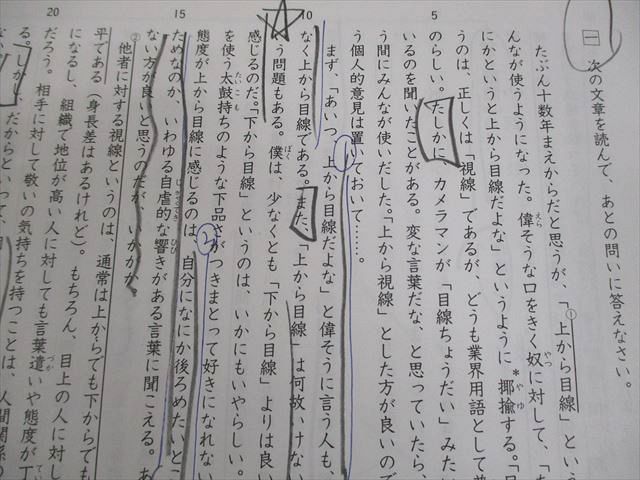 一 次の文章を読んで、あとの問いに答えなさい。
たぶん十数年まえからだと思うが、「上から目線」という
んなが使うようになった。偉そうな口をきく奴に対して、「
にかというと上から目線だよな」というように*揶揄する。「
うのは、正しくは「視線」であるが、どうも業界用語として
のらしい。たしかに、カメラマンが「目線ちょうだい」みた
いるのを聞いたことがある。変な言葉だな、と思っていたら、
う間にみんなが使いだした。「上から視線」とした方が良いので
う個人的意見は置いておいて……。
まず、「あいつ、上から目線だよな」と偉そうに言う人も、
なく上から目線である。また、「上から目線」は何故いけない
う問題もある。僕は、少なくとも「下から目線」よりは良い
感じるのだ。「下から目線」というのは、いかにもいやらしい。
を使う太鼓持ちのような下品さがつきまとって好きになれない
態度が上から目線に感じるのは、自分になにか後ろめたいとこ
ためなのか、いわゆる自虐的な響きがある言葉に聞こえる。あ
ない方が良いと思うのだが、いかがか。
②他者に対する視線というのは、通常は上からでも下からでも
平である(身長差はあるけれど)。もちろん、目上の人に対し
になるし、組織で地位が高い人に対しても言葉遣いや態度が丁
だろう。相手に対して敬いの気持ちを持つことは、人間関係の
しかし、だからといって、